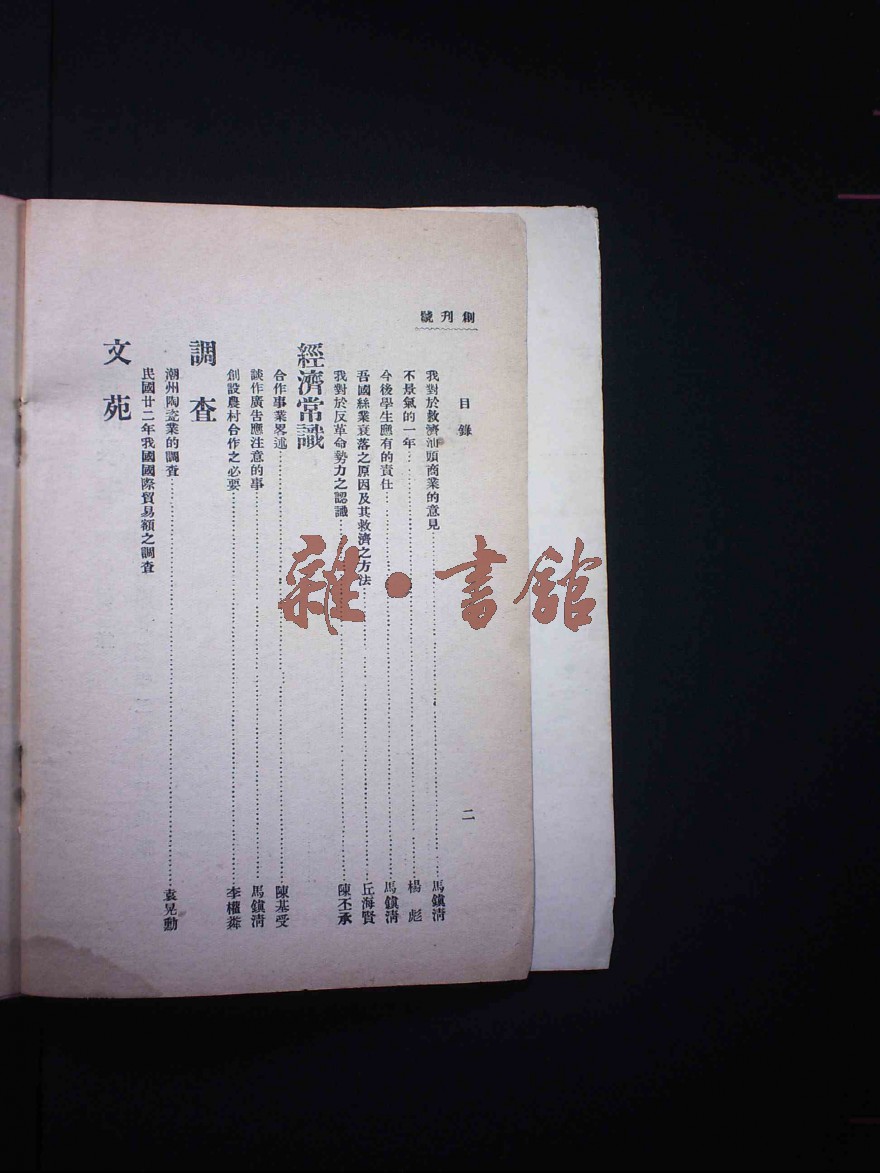 創刊號
目錄
二
我對於救濟汕頭商業的意見 馬鎮清
不景氣的一年 楊彪
今後學生應有的責任 馬鎮清
吾國絲業衰落之原因及其救濟之方法 丘海賢
我對於反革命勢力之認識 陳丕承
經濟常識
合作事業畧述 陳基受
談作廣告應注意的事 馬鎮清
創設農村合作之必要 李權
調查
潮州陶瓷業的調查 袁晃動
民國廿二年我國國際貿易額之調查
文苑
雜·書館